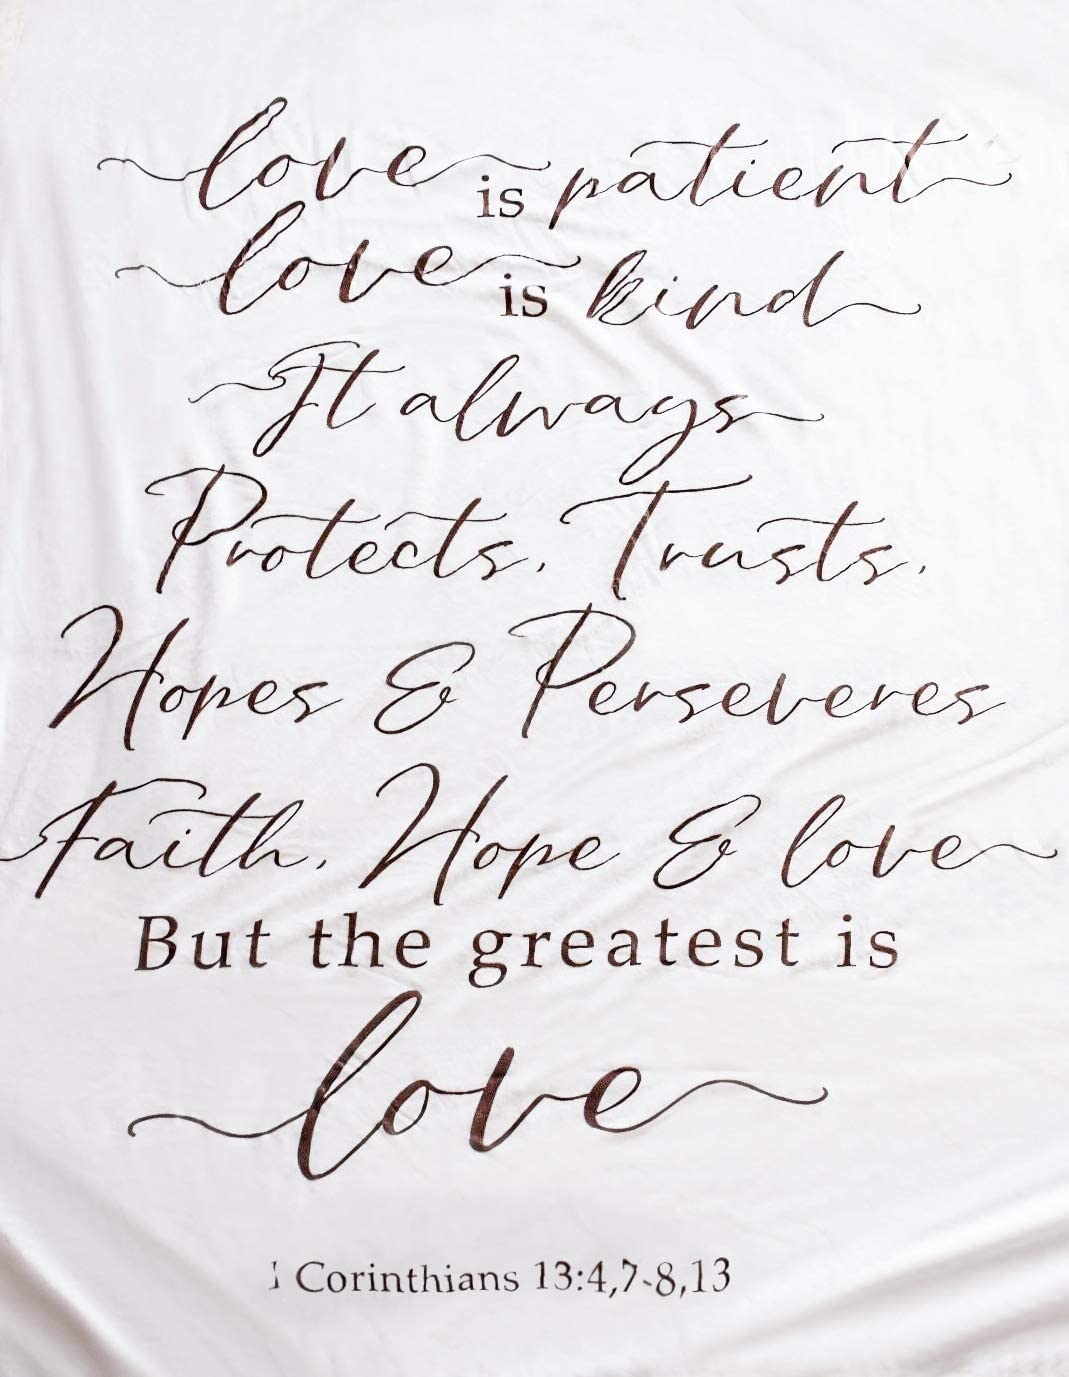 love is patient
love is kind
It always
Protects, Trusts,
Hopes & Perseveres
Faith, Hope & love
But the greatest is
love
1 Corinthians 13:4,7-8,13